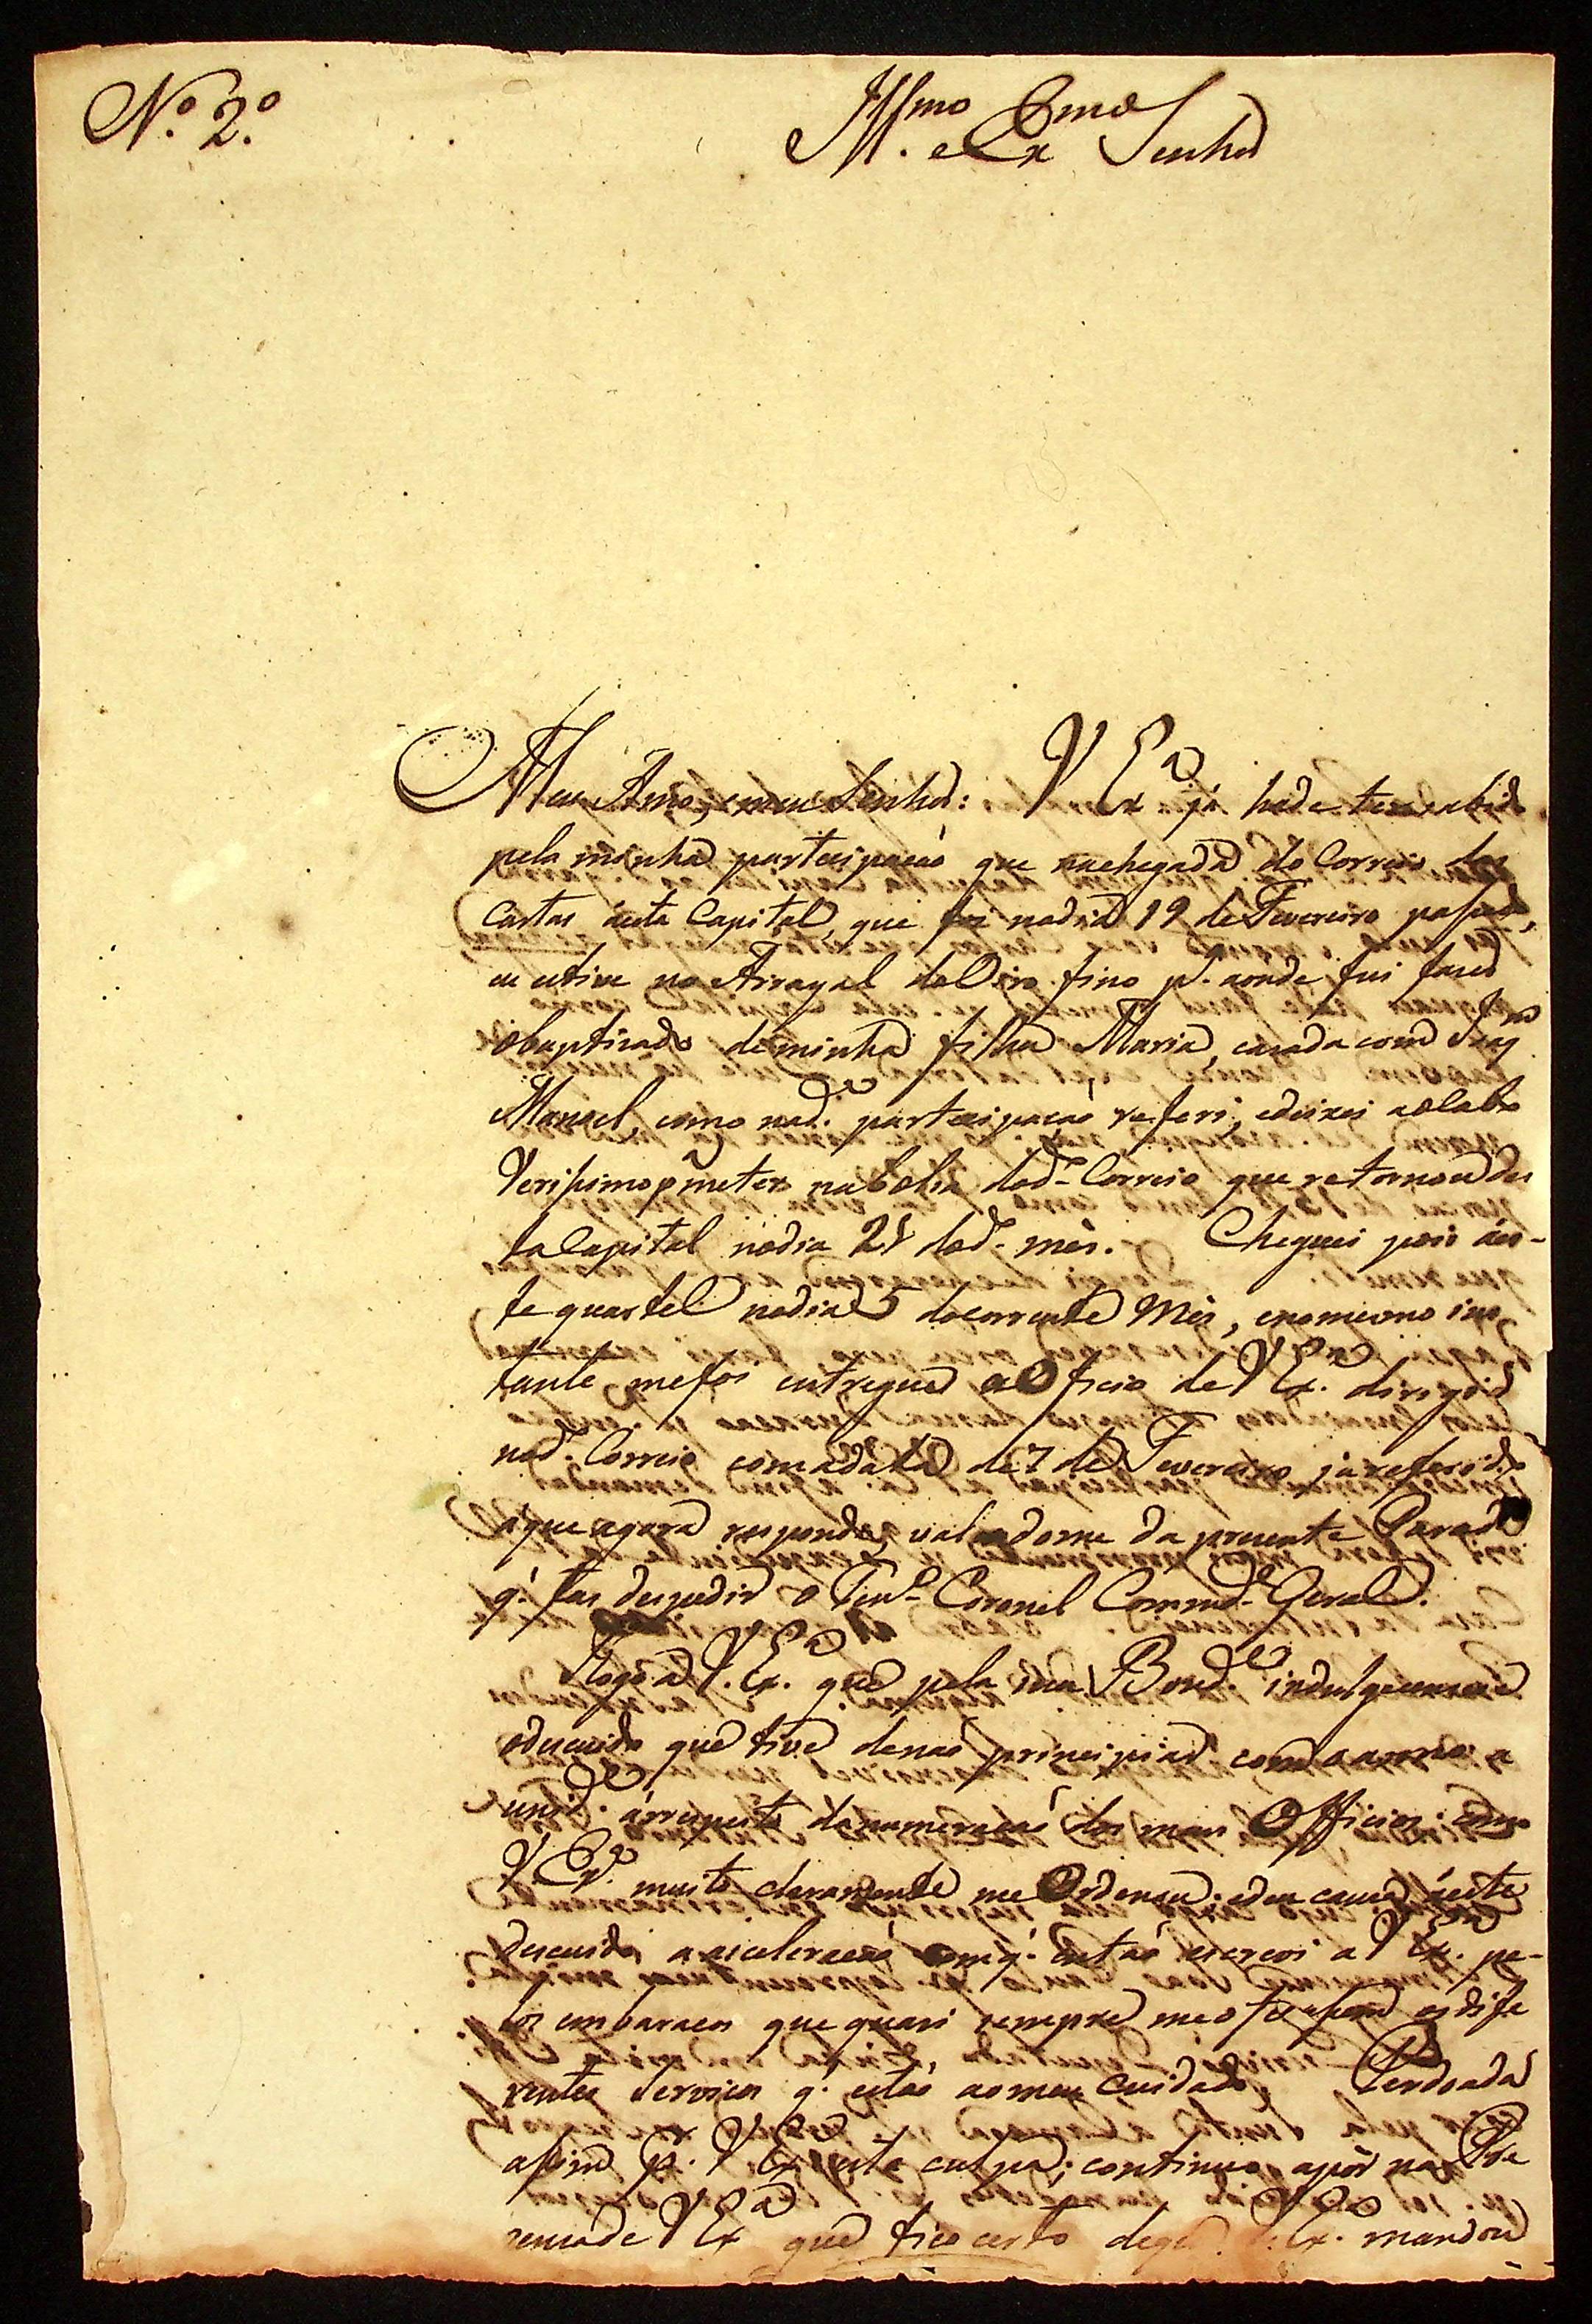 N.º 2.º
Ill.mo e Ex.mo Senhor
Meu Amo, e meu Senhor: V Ex.a já hade ter sabido
pela minha participaçaõ que na chegada do Correio das
Cartas á esta Capital, que foi no dia 19 de Fevereiro passado,
eu estive no Arrayal do Oiro fino p.a aonde fui fazer
o baptizado de minha filha Maria, cazada com Joaq.m
Manoel, como na d.a participaçaõ referi, e deixei ao Cabo
Verissimo p.a meter na bolsa do d.o Correio que retornou des
ta Capital no dia 21 do d.o mês. Cheguei pois aés-
te quartel no dia 5 do corrente Mês, e no mesmo ins
tante me foi entregue o Oficio de V Ex.a dirigido
no d.o Correio com a data de 7 de Fevereiro já referido
a que agora respondo, valendo me da prezente Parada
q' faz despedir o Ten.e Coronel Comand.e Geral.
Rogo a V. Ex.a que pela sua Bond.e indulgencie
o descuido que tive de naõ principiar com o anno a
unid.e á respeito da numeraçaõ dos meus Officios como
V. Ex.a muito claramente me Ordenou: e deu cauza á este
descuido a aceleraçaõ com q' entaõ escrevi a V Ex.a pe-
los embaraços que quasi sempre me ofressem os dife
rentes Serviços q' estaõ ao meu Cuidado. Perdoada
assim p.r V Ex.a esta culpa; continuo a pôr na Pre
zença de V Ex.a que fico certo de q' V. Ex.a mandou